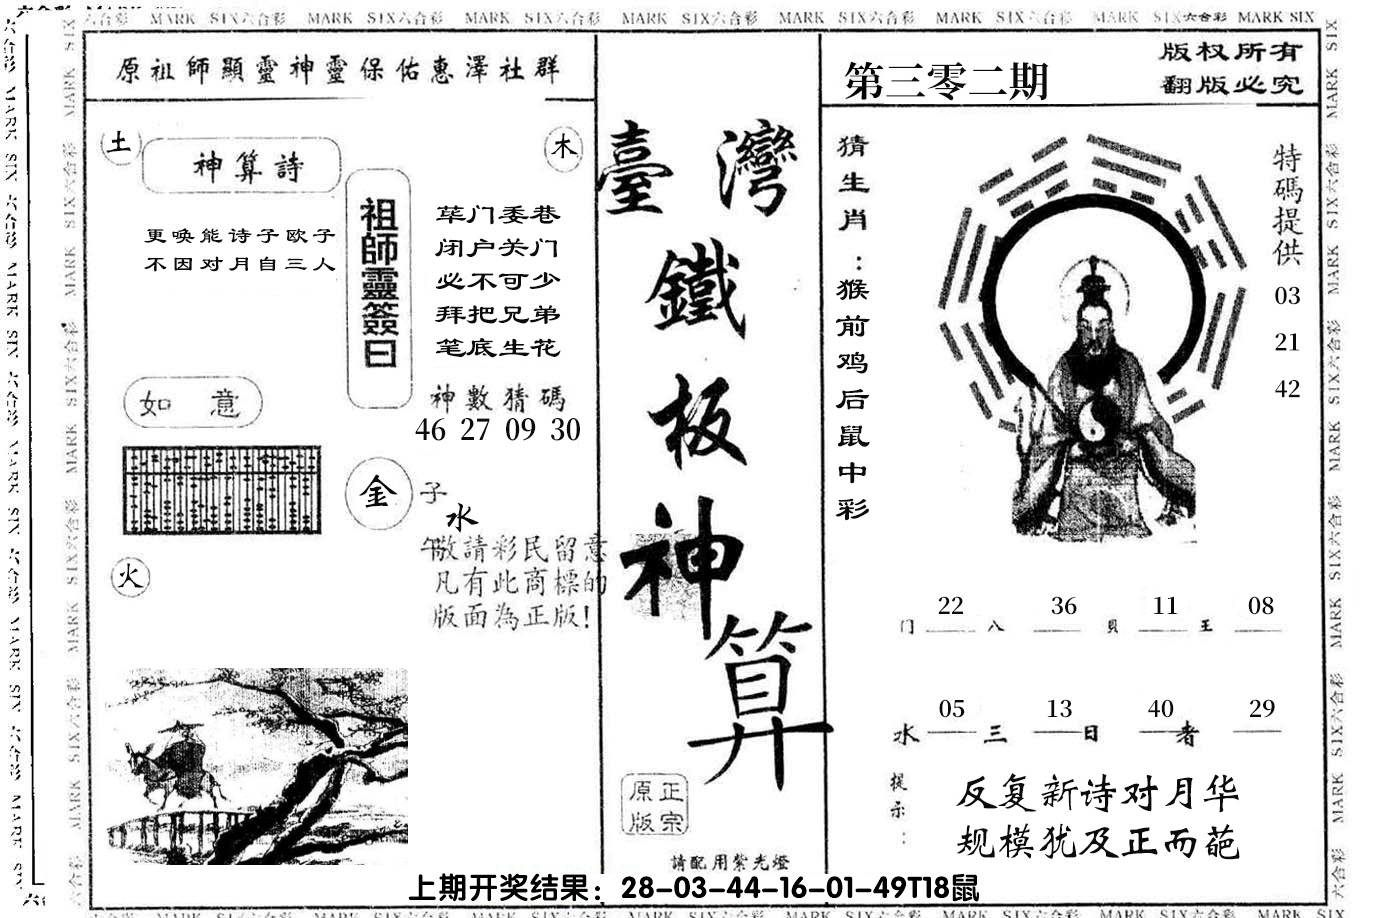 原祖師顯靈神靈保佑惠澤社群
土
神算詩
木
更唤能诗子欧子
不因对月自三人
祖師靈簽曰
荜门委巷
闭户关门
必不可少
拜把兄弟
笔底生花
神數猜碼
46 27 09 30
如 意
金
子
水
午
敬請彩民留意
凡有此商標的
版面為正版!
火
臺灣
鐵
板
神
算
正宗
原版
請配用紫光燈
第三零二期
版权所有
翻版必究
猜生肖:猴前鸡后鼠中彩
特碼提供
03
21
42
22 36 11 08
门 八 貝 王
05 13 40 29
水 三 日 者
提示:
反复新诗对月华
规模犹及正而葩
上期开奖结果：28-03-44-16-01-49T18鼠
MARK SIX六合彩 MARK SIX六合彩 MARK SIX六合彩 MARK SIX六合彩 MARK SIX六合彩 MARK SIX六合彩 MARK SIX六合彩 MARK SIX